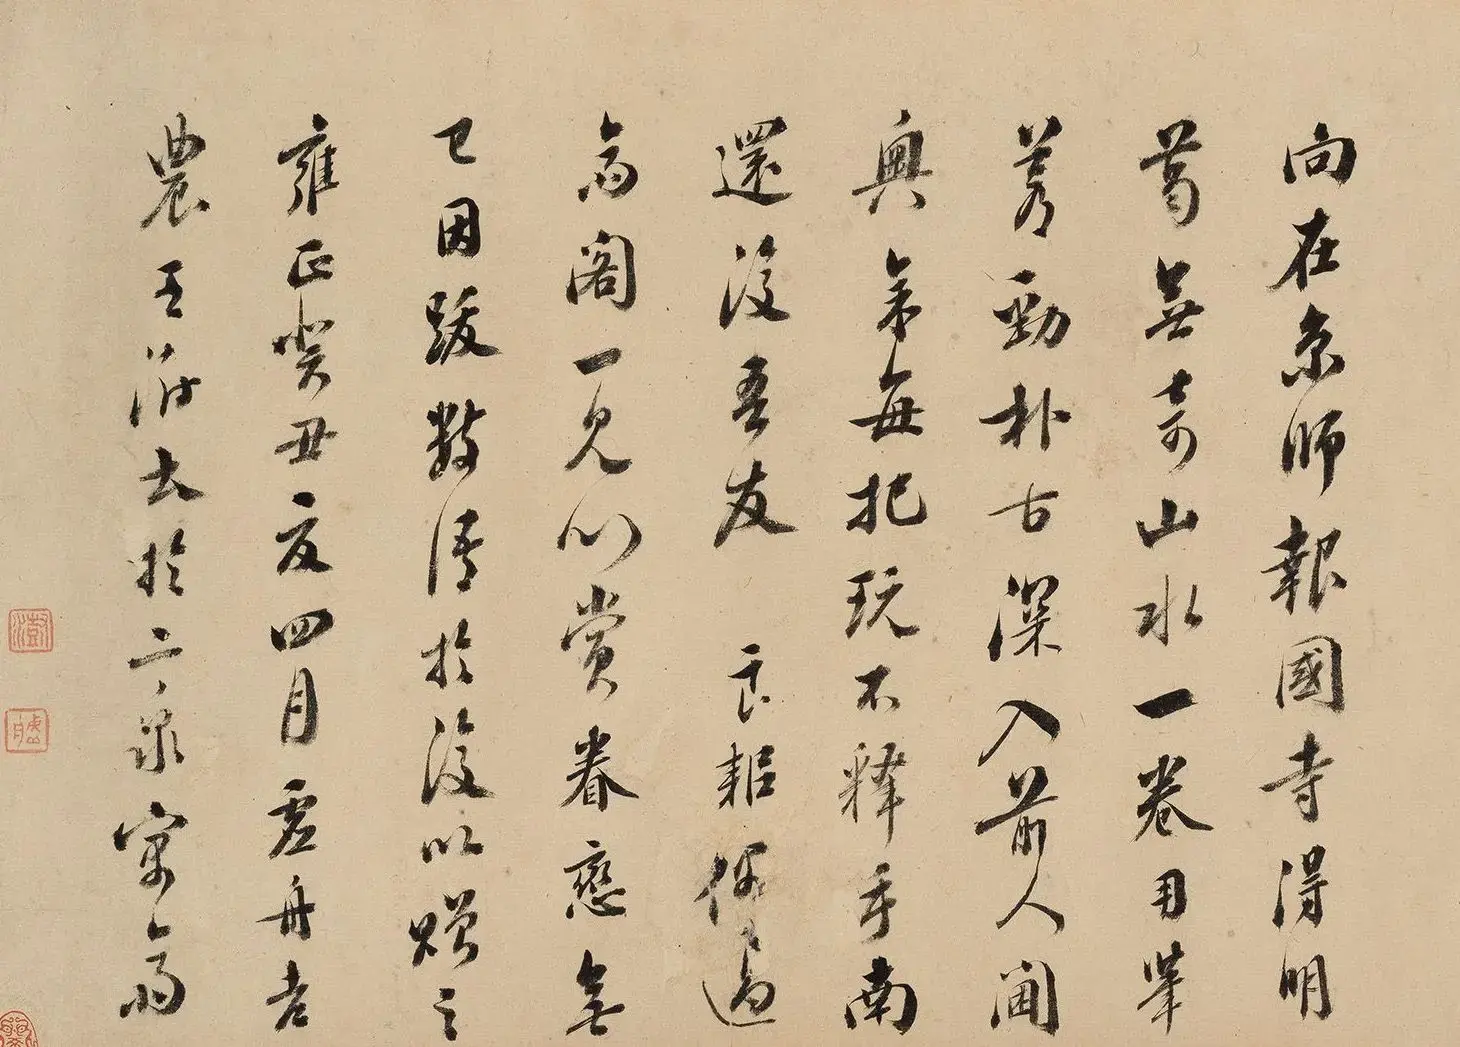 向在京師報國寺得明
葛無奇山水一卷用筆
蒼勁朴古深入前人閫
奧余每把玩不釋手南
還後吾友 良耜偶過
高閣一見心賞眷戀無
已因跋數語於後以贈之
雍正癸丑夏四月虛舟老
農王澍書於二泉寓齋